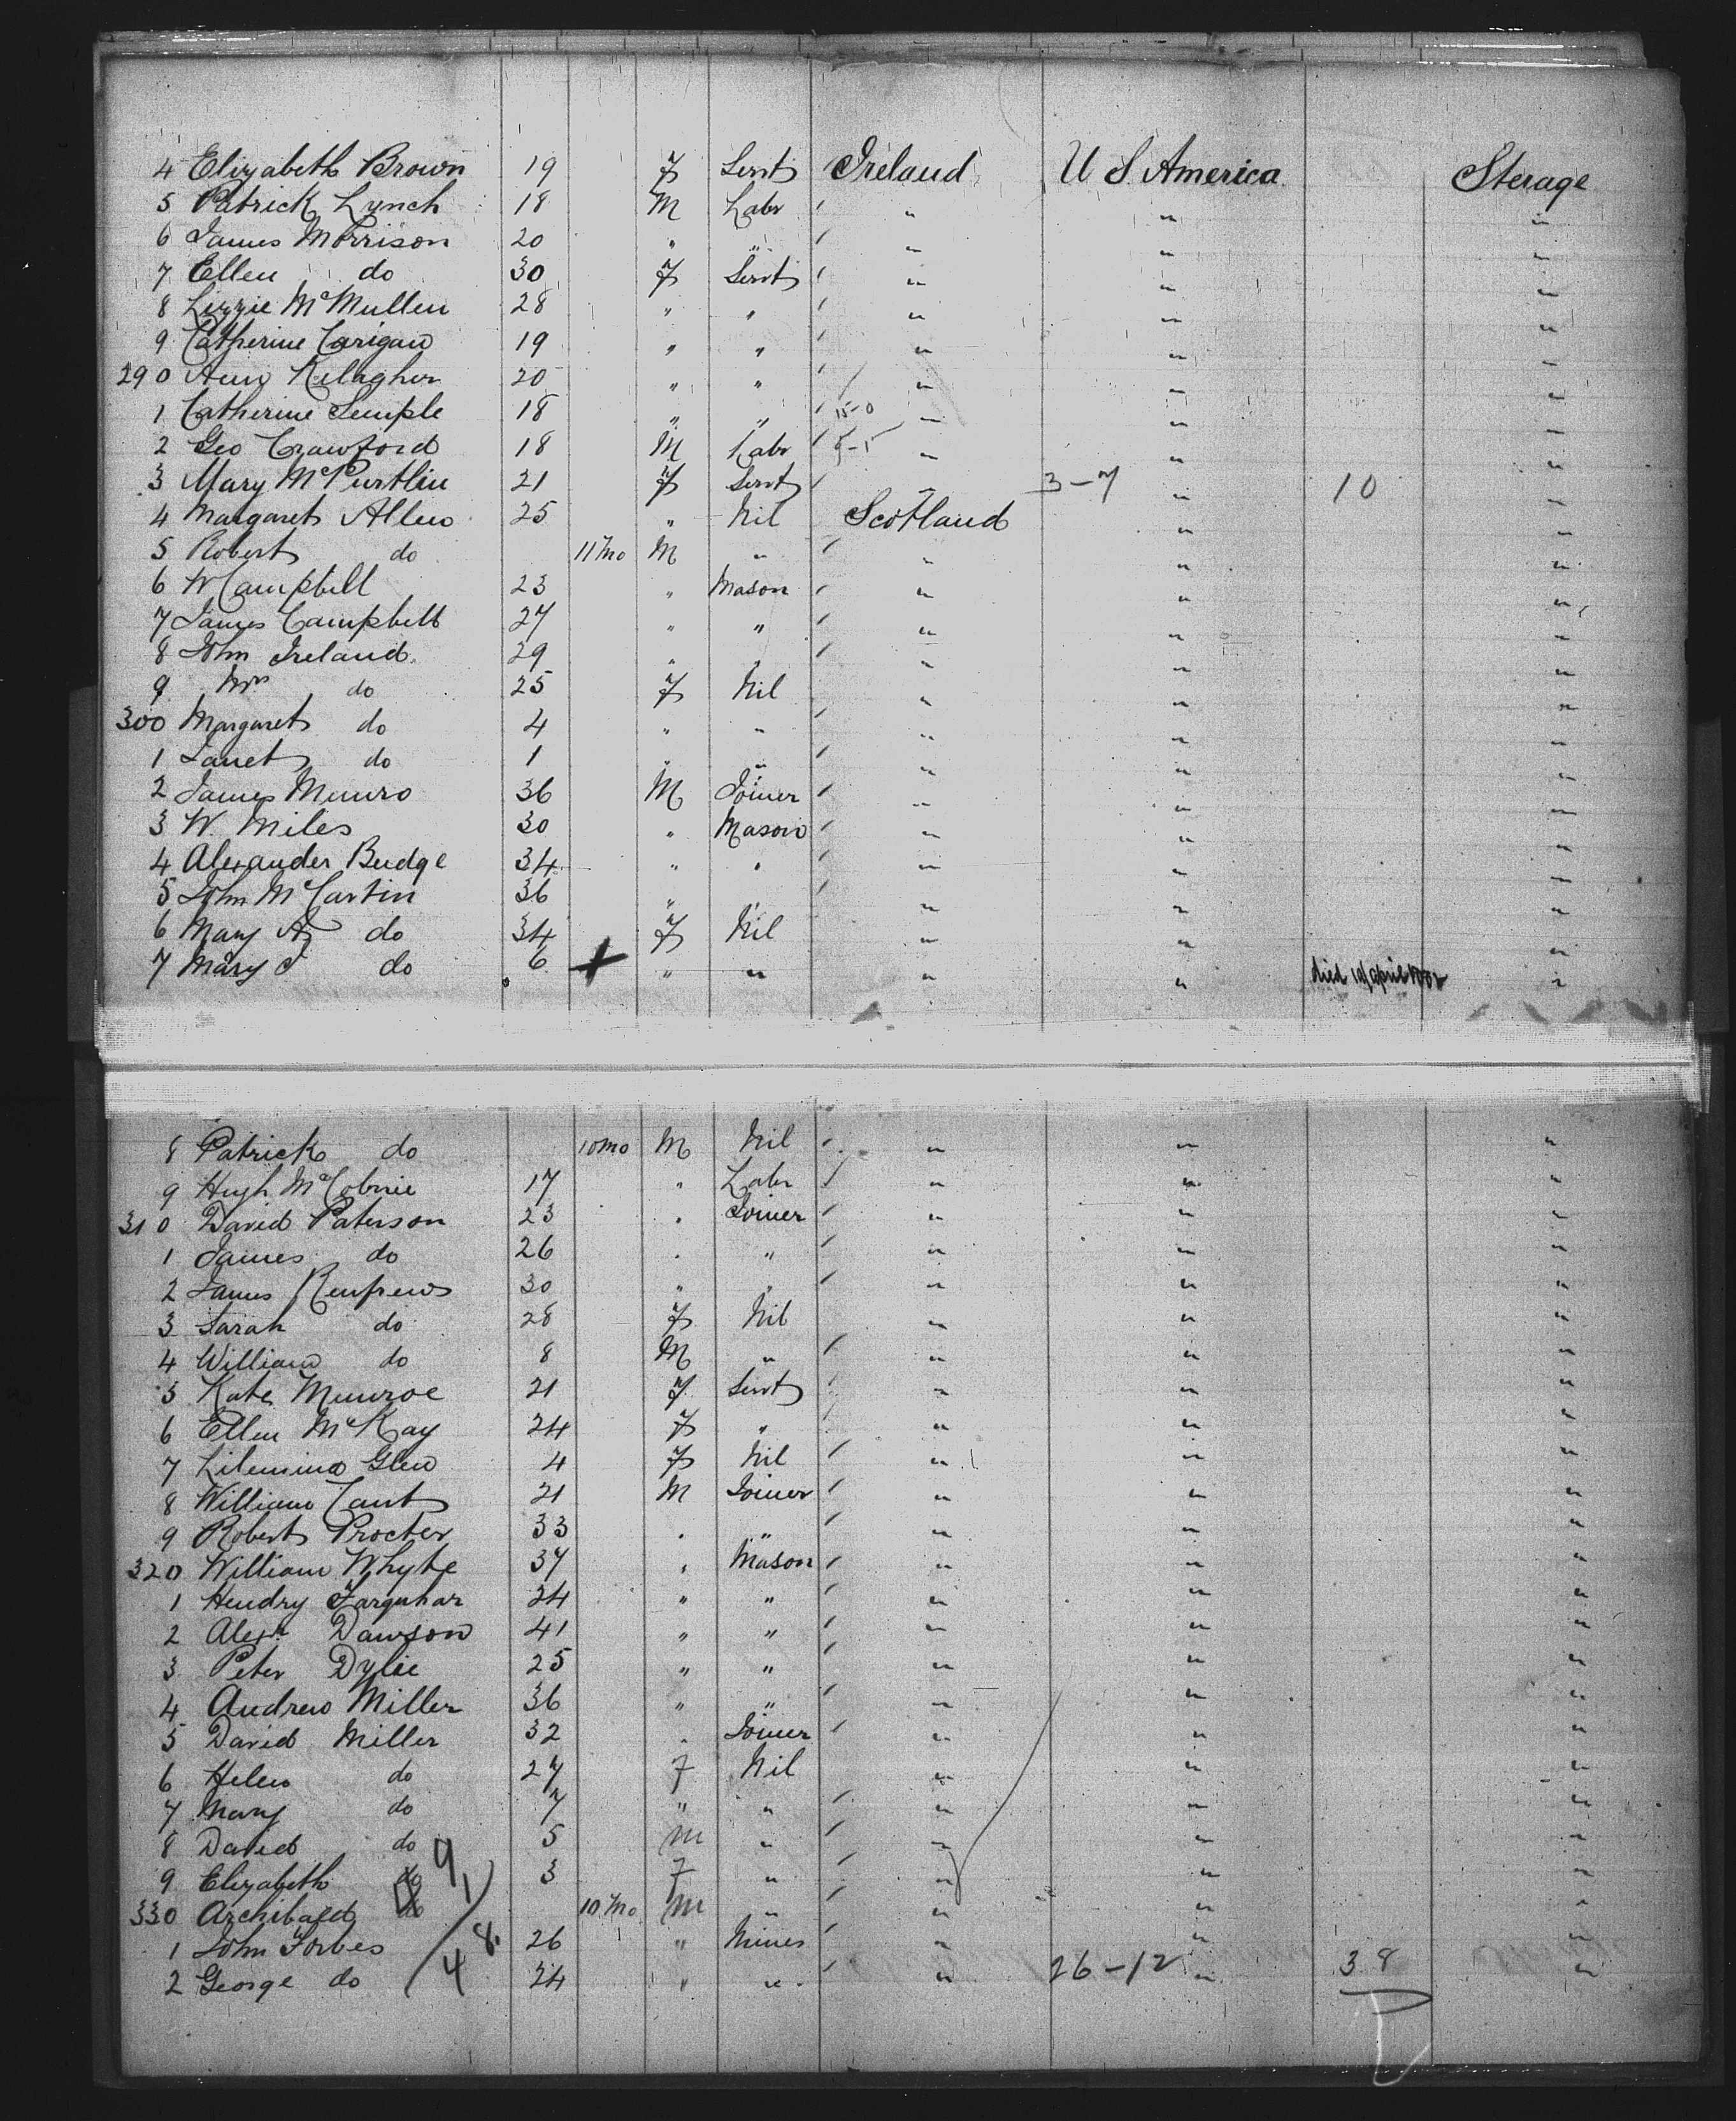 4 Elizabeth Brown 19 F Servt Ireland U S. America Sterage
5 Patrick Lynch 18 M Labr " " "
6 James Morrison 20 " " " " "
7 Ellen do 30 F Servt " " "
8 Lizzie McMullen 28 " " " " "
9 Catherine Carigan 19 " " " " "
290 Ann 20 " " " " "
1 Catherine Semple 18 " " 15-0 " " "
2 Geo Crawford 18 M Labr " " "
3 Mary McPurtlin 21 F Servt " 3-7 " 10 "
4 Margaret Allen 25 " Nil Scotland " "
5 Robert do 11 mo M " " " "
6 W Campbell 23 " Mason " " "
7 James Campbell 27 " " " " "
8 John Ireland 29 " " " " "
9 Mrs do 25 F Nil " " "
300 Margaret do 4 " " " " "
1 Janet do 1 " " " " "
2 James Munro 36 M Joiner " " "
3 W. Miles 30 " Mason " " "
4 Alexander Budge 34 " " " " "
5 John McCartin 36 " " " " "
6 Mary A do 34 F Nil " " "
7 Mary J do 6 + " " " " died april "
8 Patrick do 10 mo M Nil " " "
9 Hugh 17 " Labr " " "
310 David Paterson 23 " Joiner " " "
1 James do 26 " " " " "
2 James Renfrew 30 " " " " "
3 Sarah do 28 F Nil " " "
4 William do 8 M " " " "
5 Kate Munroe 21 F Servt " " "
6 Ellen McKay 24 F " " " "
7 Glen 4 F Nil " " "
8 William Cant 21 M Joiner " " "
9 Robert Procter 33 " " " " "
320 William Whyte 37 " Mason " " "
1 Hendry Farquhar 24 " " " " "
2 Alexr Dawson 41 " " " " "
3 Peter Dylie 25 " " " " "
4 Andrew Miller 36 " " " " "
5 David Miller 32 " Joiner " " "
6 Helen do 27 F Nil " " "
7 Mary do 7 " " " " "
8 David do 5 M " " " "
9 Elizabeth do 3 F " " " "
330 Archibald do 10 mo M " " " "
1 John Forbes 26 " Miner " " "
2 George do 24 " " " 26-12 " 38 "